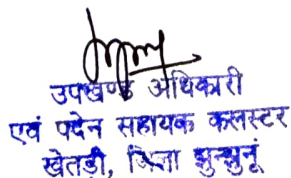 उपखण्ड अधिकारी
एवं पदेन सहायक कलक्टर
खेतडी, जिला झुन्झुनूं